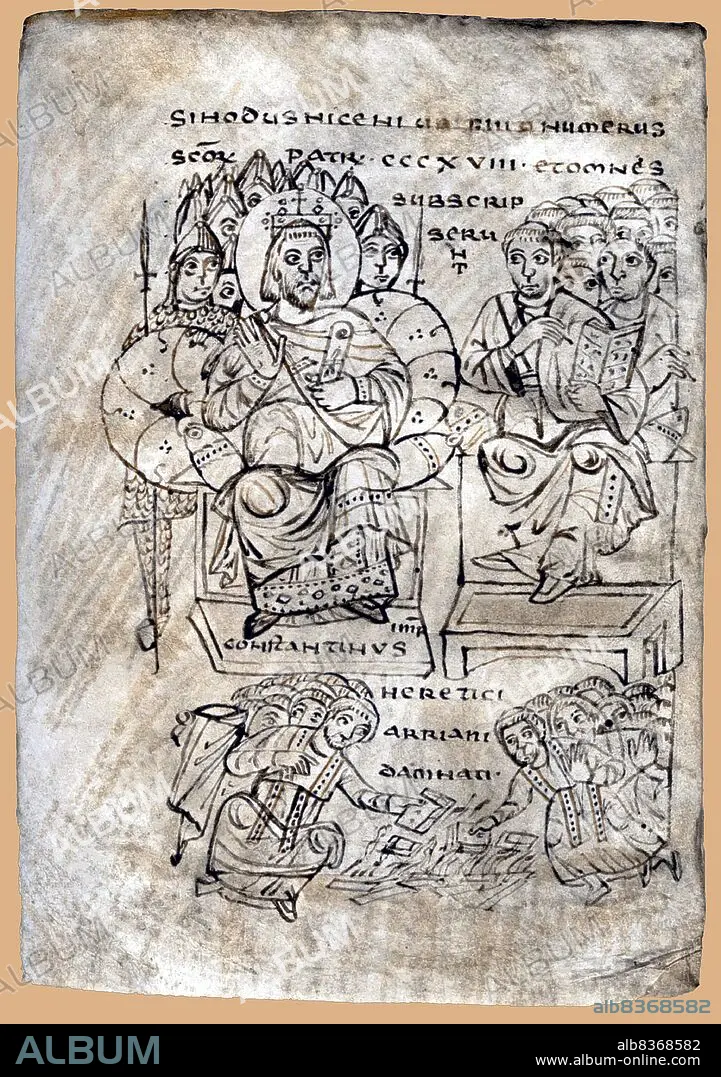 SINODUS NICENI NUMERUS
SCŌR PATR · CCCXVIII · ET OMNES
SUBSCRIP
SERU
N
T
IMP
CONSTANTINVS
HERETICI
ARRIANI
DAMNATI·
alb8368582
ALBUM
alb8368582
www.album-online.com